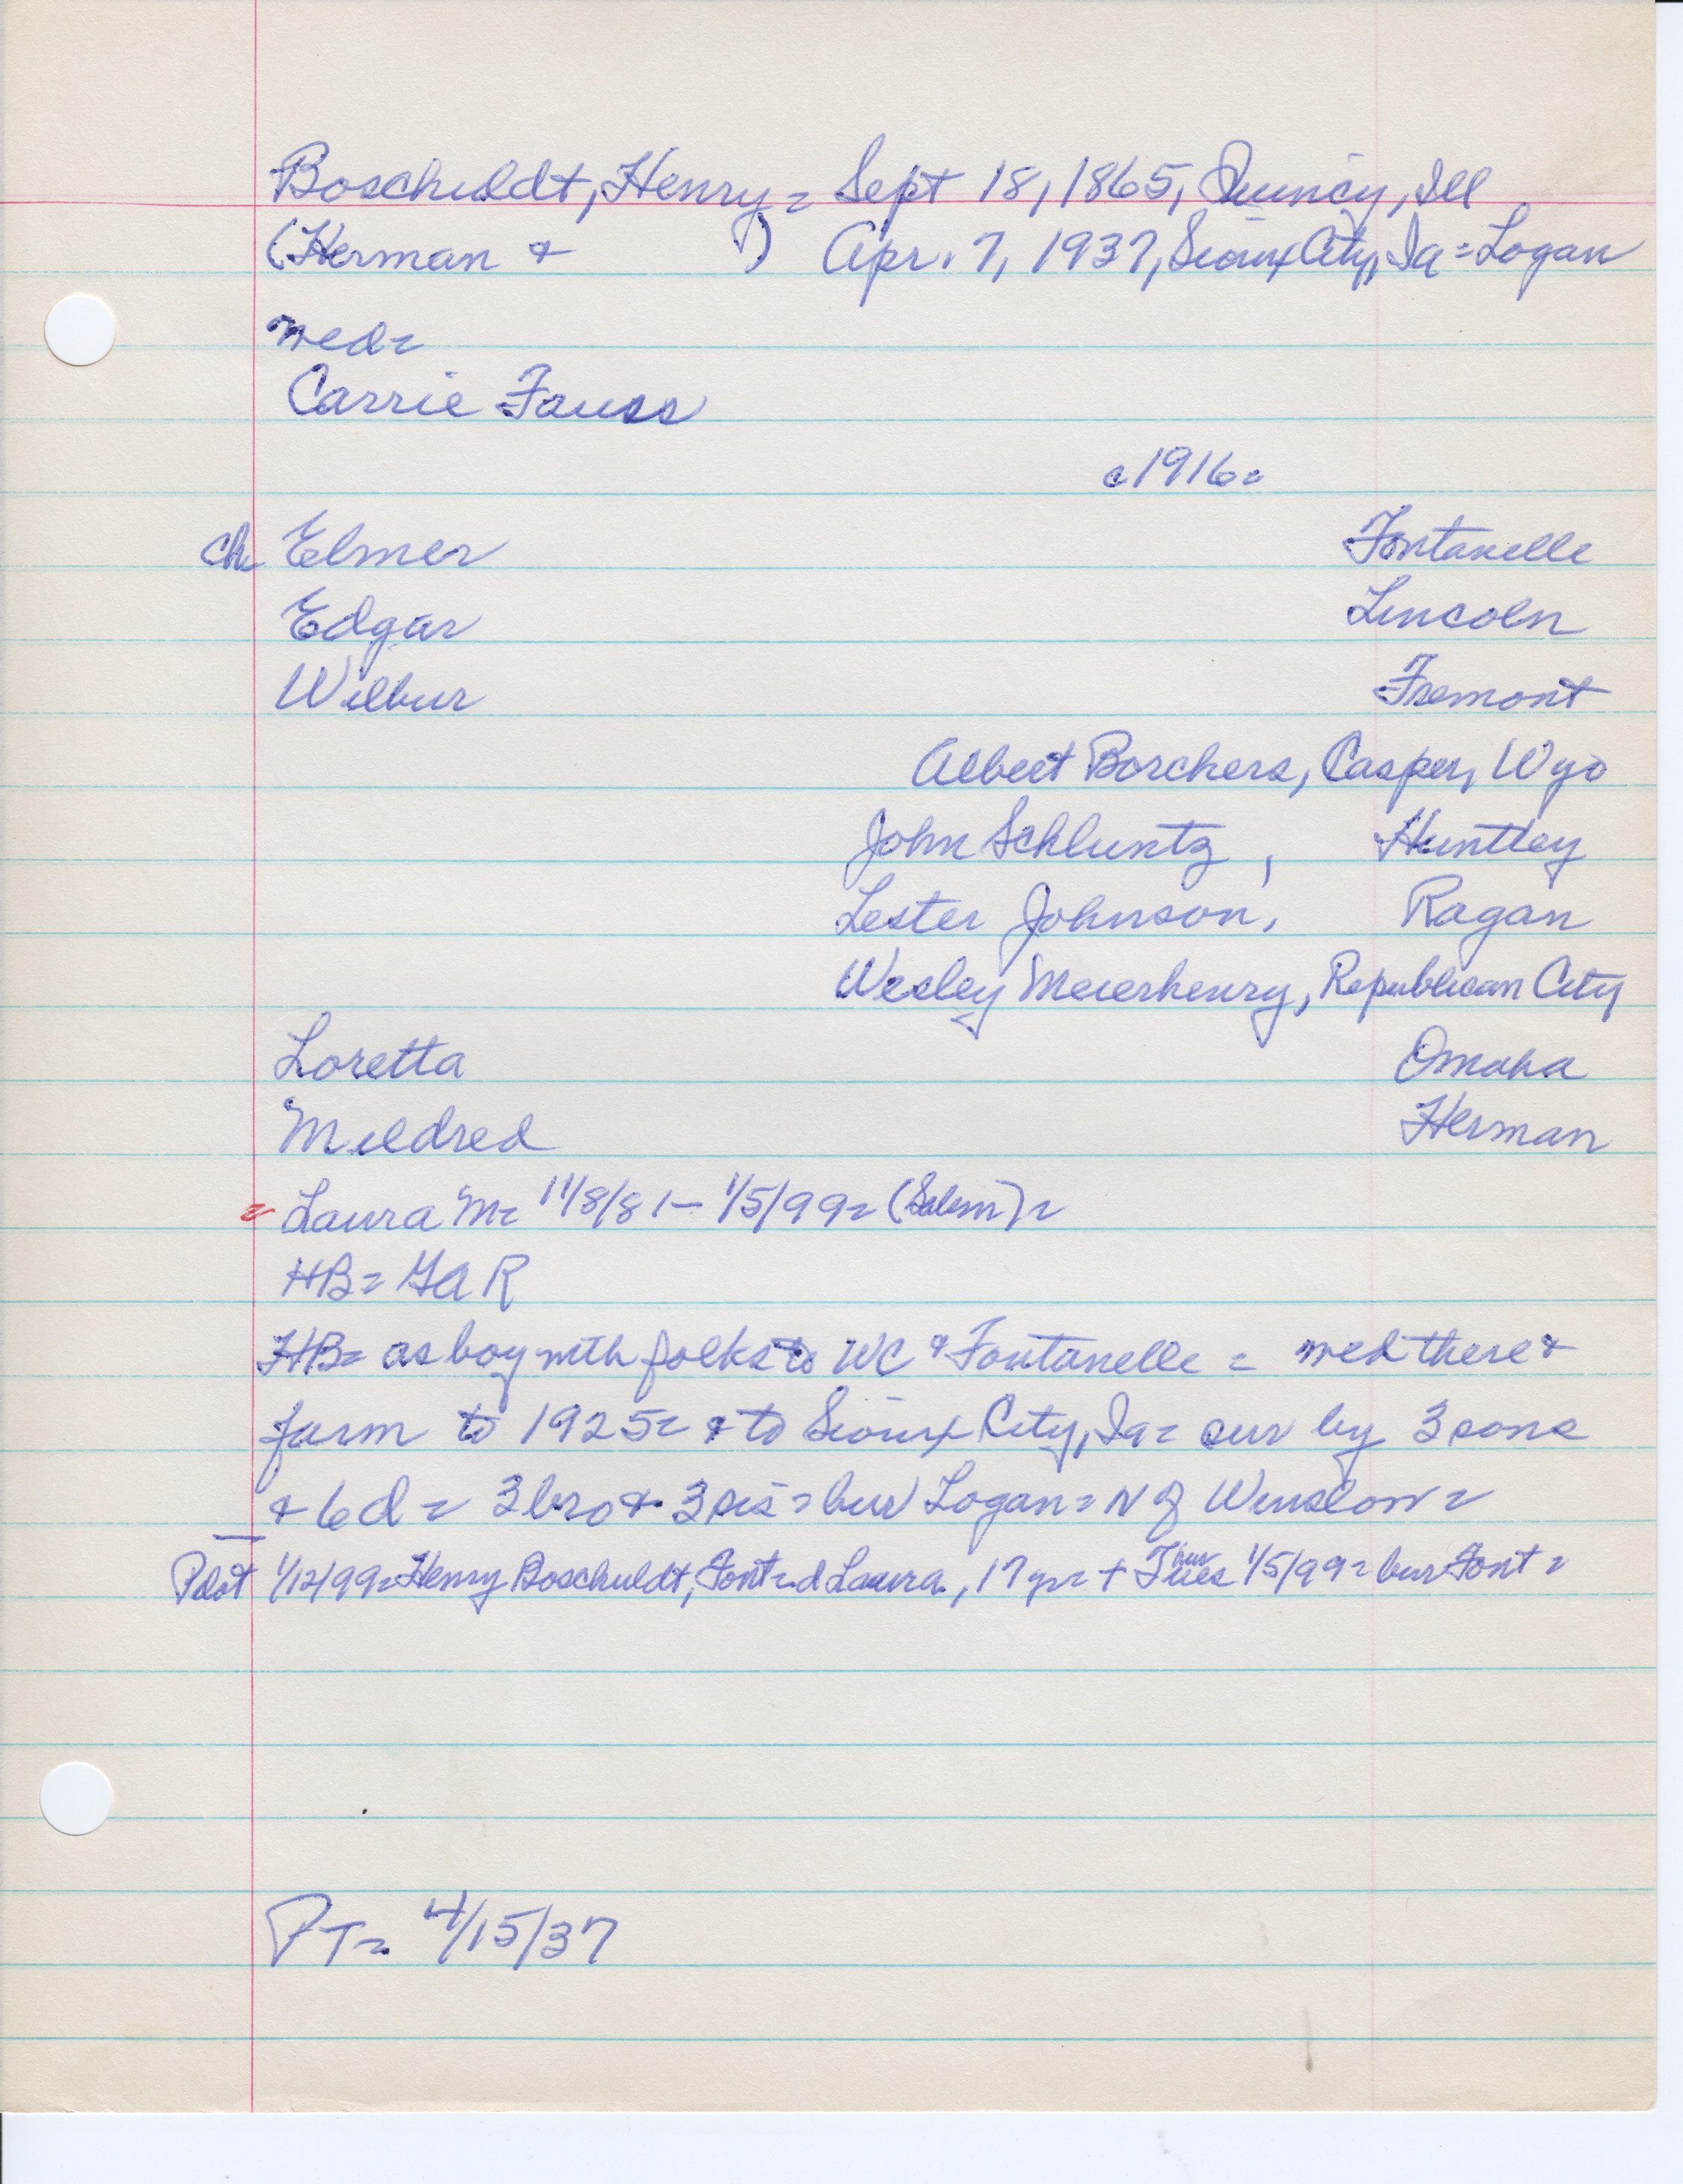 Boschuldt, Henry = Sept 18, 1865, Quincy, Ill
(Herman & ) Apr. 7, 1937, Sioux City, Ia = Logan
med =
Carrie Fauss
c1916 =
ch Elmer Fontanelle
Edgar Lincoln
Wilbur Fremont
Albert Borchers, Casper, Wyo
John Schluntz, Huntley
Lester Johnson, Ragan
Wesley Meierhenry, Republican City
Loretta Omaha
Mildred Herman
= Laura M = 11/8/81 – 1/5/99 = (Salem) =
HB = GAR
HB = as boy with folks to WC & Fontanelle = med there &
farm to 1925 = & to Sioux City, Ia = sur by 3 sons
& 6 d = 3 bro & 3 sis = bur Logan = N of Winslow =
1/12/99 = Henry Boschuldt, Font = d Laura, 17 yr = + Tues 1/5/99 = bur Font =
PT = 4/15/37